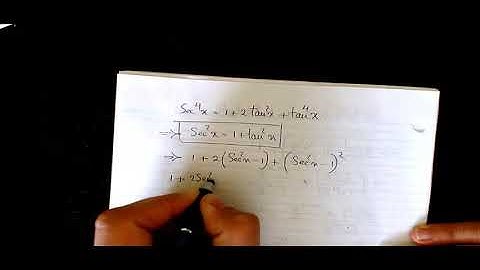 Sec⁴x = 1 + 2 tan²x + tan⁴x
⇒ Sec²x = 1 + tan²x
⇒ 1 + 2(Sec²x - 1) + (Sec²x - 1)²
1 + 2Sec²